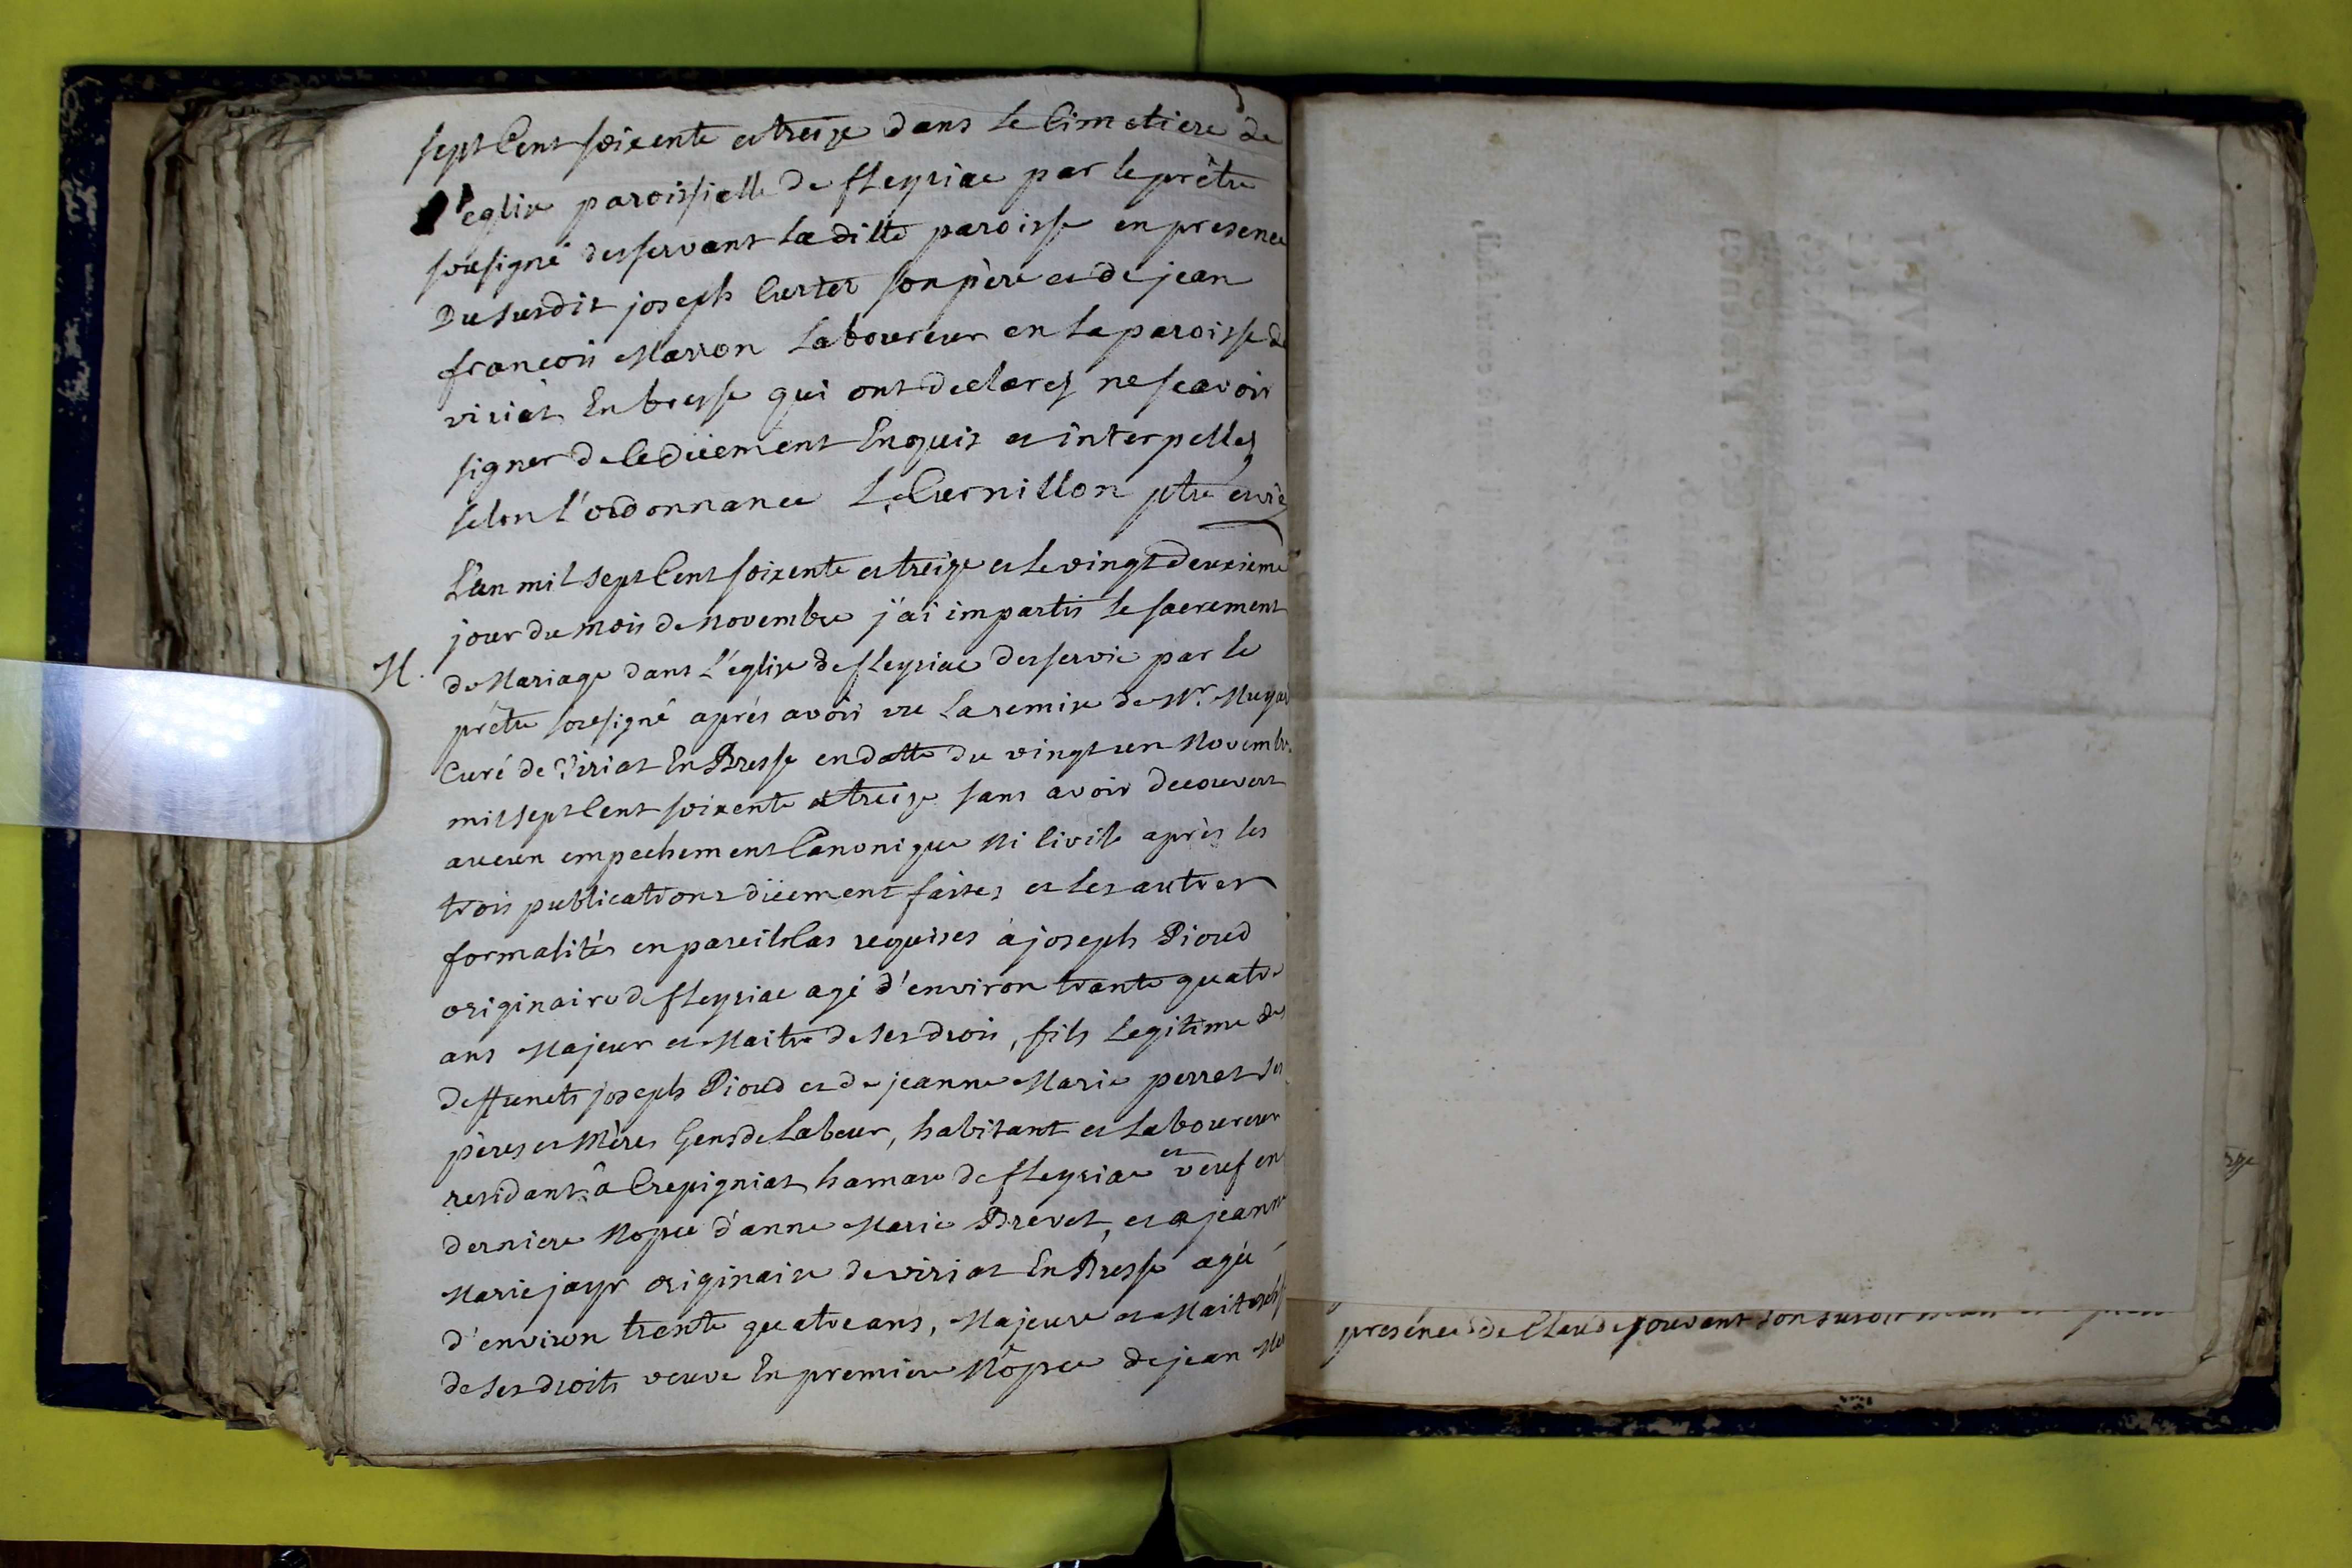 sept Cent soixente et treize dans le Cimetiere de
l'eglise paroissielle de fleyriac par le prêtre
sousigné desservant la ditte paroisse en presence
Du susdit joseph Curtet son père et de jean
francois Marron Laboureur en la paroisse de
viriat En bresse qui ont declarez ne scavoir
signer de ce düement Enquis et interpellez
selon l'ordonnance L. Curnillon ptre
L'an mil sept Cent soixente et treize et le vingt deuxieme
jour du mois de Novembre j'ai impartis le sacrement
M.
de Mariage dans l'eglise de fleyriac desservie par le
prêtre sousigné aprés avoir vu la remise de Mr.
Curé de Viriat En Bresse en datte du vingt un Novembre
mil sept Cent soixente et treize sans avoir decouvert
aucun empechement Canonique Ni Civile après les
trois publications düement faites et les autres
formalités en pareils Cas requises à joseph Pioud
originaire de fleyriac agé d'environ trante quatre
ans Majeur et Maitre de ses drois, fils Legitime des
deffunets joseph Pioud et de jeanne Marie perret ses
pères et Mères Gens de Labeur, habitant et Laboureur
residant à Crepigniat hamau de fleyriac et veuf en
derniere Nopce d'anne Marie Brevet, et a jeanne
Marie jayr originaire de viriat En Bresse agée
d'environ trente quatre ans, Majeure et Maitresse
de ses droits veuve En premiere Nôpce de jean
presénce de Claude jouvent son